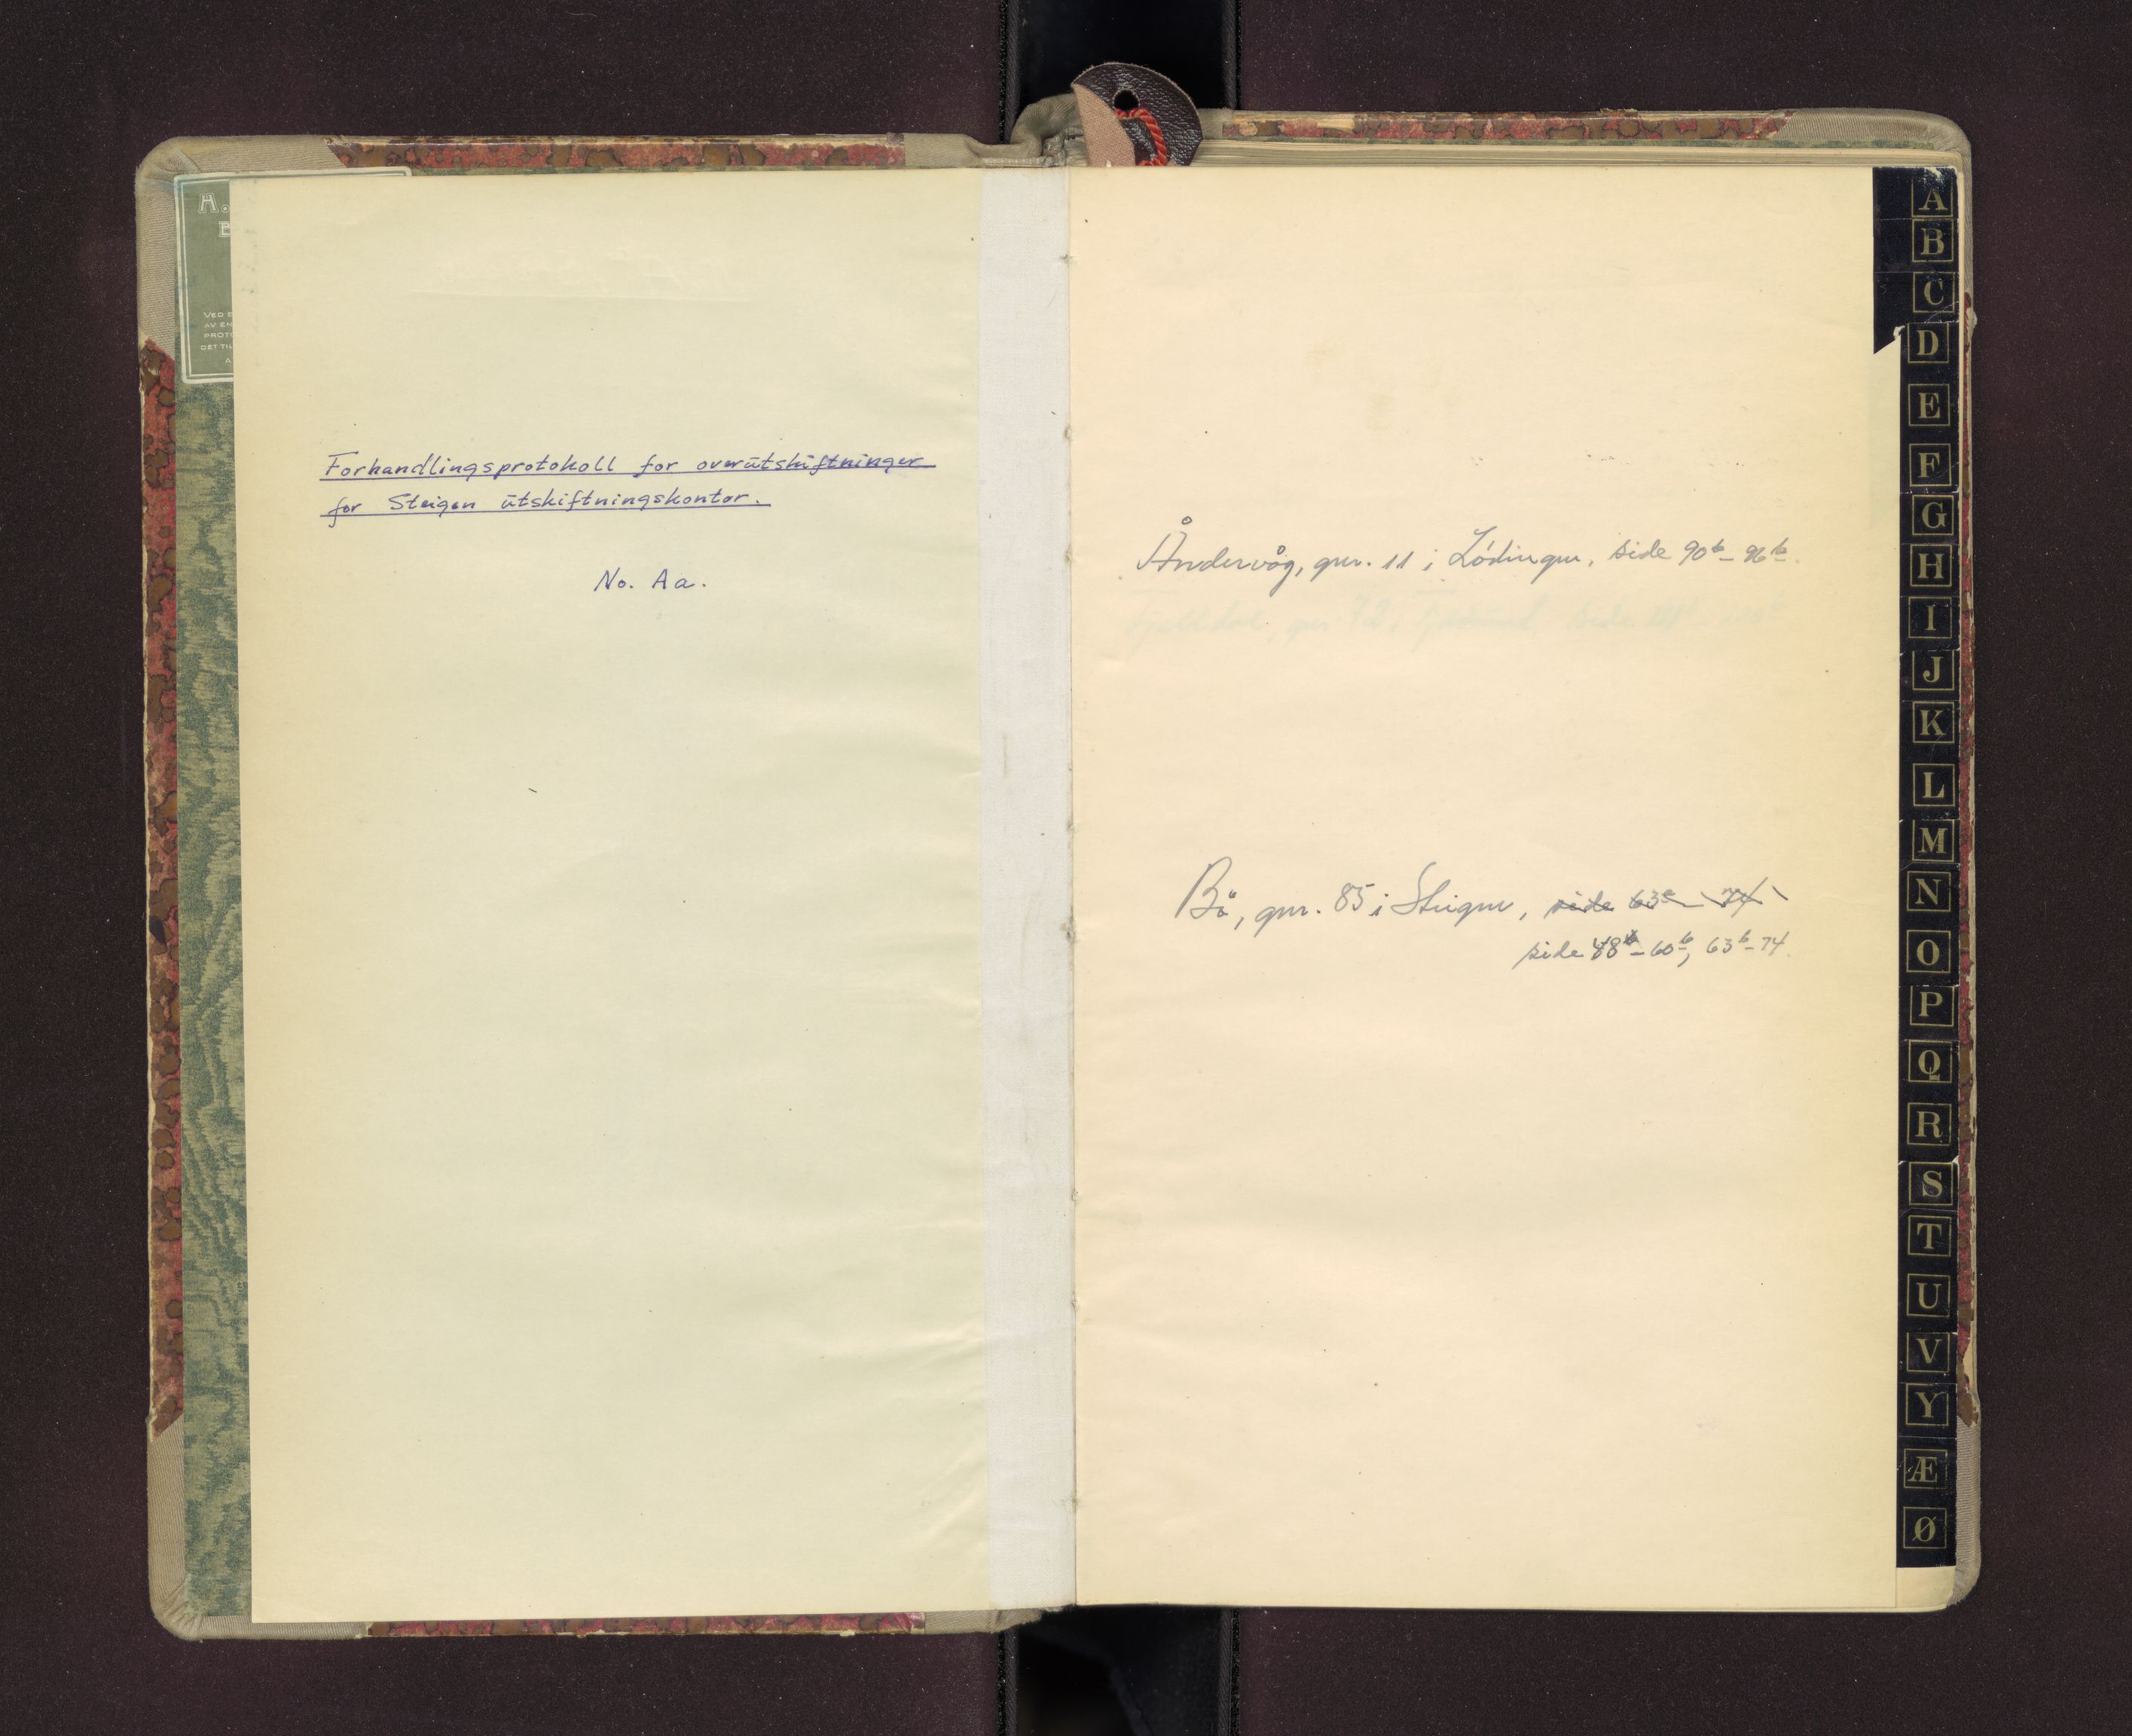 A.
VED
AV EN
PROTO
DET TIL
A
Forhandlingsprotokoll for overutskiftninger
for Steigen utskiftningskontor.
No. Aa.
Åndervåg, gnr. 11 i Lödingen, side 90b - 96b.
Bö, gnr. 85 i Steigen, side 63a - 74
side 48b - 60b, 63b - 74.
A
B
C
D
E
F
G
H
I
J
K
L
M
N
O
P
Q
R
S
T
U
V
Y
Æ
Ø